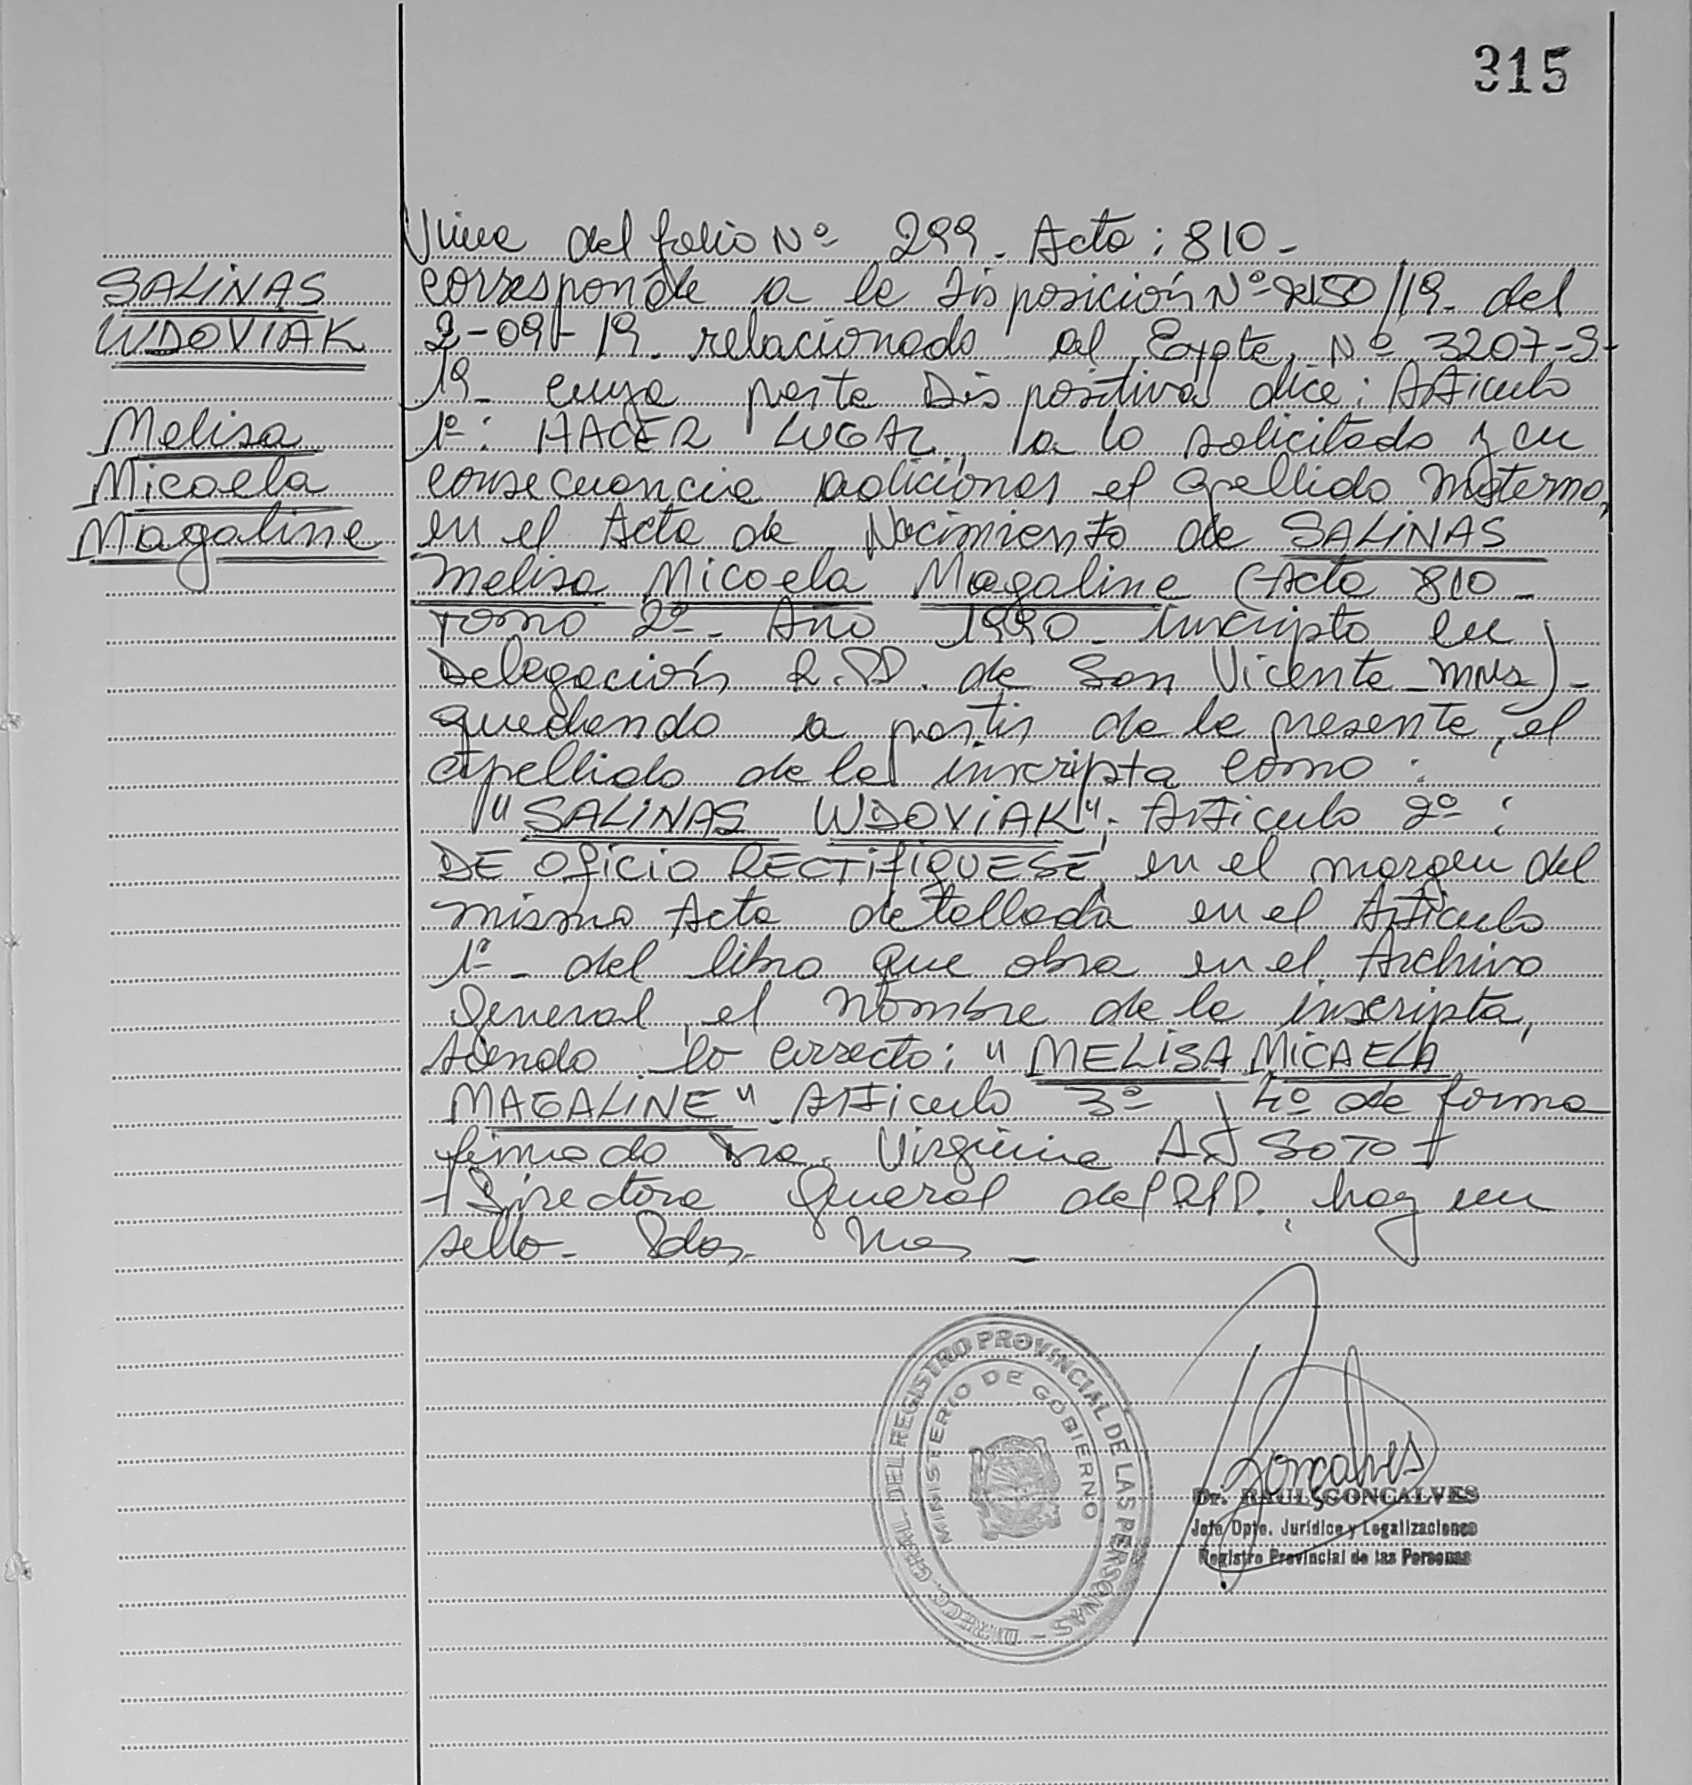 315
Viene del folio Nº 299. Acta: 810-
SALINAS
WDOVIAK
Melisa
Micaela
Magaline
corresponde a la Disposición Nº 2150/19. del
2-09-19. relacionado al Expte. Nº 3207-S-
19- cuya parte Dispositiva dice: Artículo
1º: HACER LUGAR, a lo solicitado y en
consecuencia adicionar el apellido materno,
en el Acta de Nacimiento de SALINAS
Melisa Micaela Magaline (Acta 810-
Tomo 2º- Año 1990- inscripta en
Delegación R.P.P. de San Vicente-Mnes)-
quedando a partir de la presente, el
apellido de la inscripta como:
"SALINAS WDOVIAK"; Artículo 2º:
DE Oficio RECTIFIQUESE, en el margen del
misma Acta detallada en el Artículo
1º- del libro que obra en el Archivo
General, el nombre de la inscripta,
siendo lo correcto: "MELISA MICAELA
MAGALINE". Artículo 3º y 4º de forma
firmado Dra. Virginia A. SOTO-
-Directora General del R.P.P. hay un
sello- Pdas. Mnes-
DIRECC. GRAL. DEL REGISTRO PROVINCIAL DE LAS PERSONAS -
MINISTERIO DE GOBIERNO
Goncalves
Dr. RAUL GONCALVES
Jefe Dpto. Jurídico y Legalizaciones
Registro Provincial de las Personas